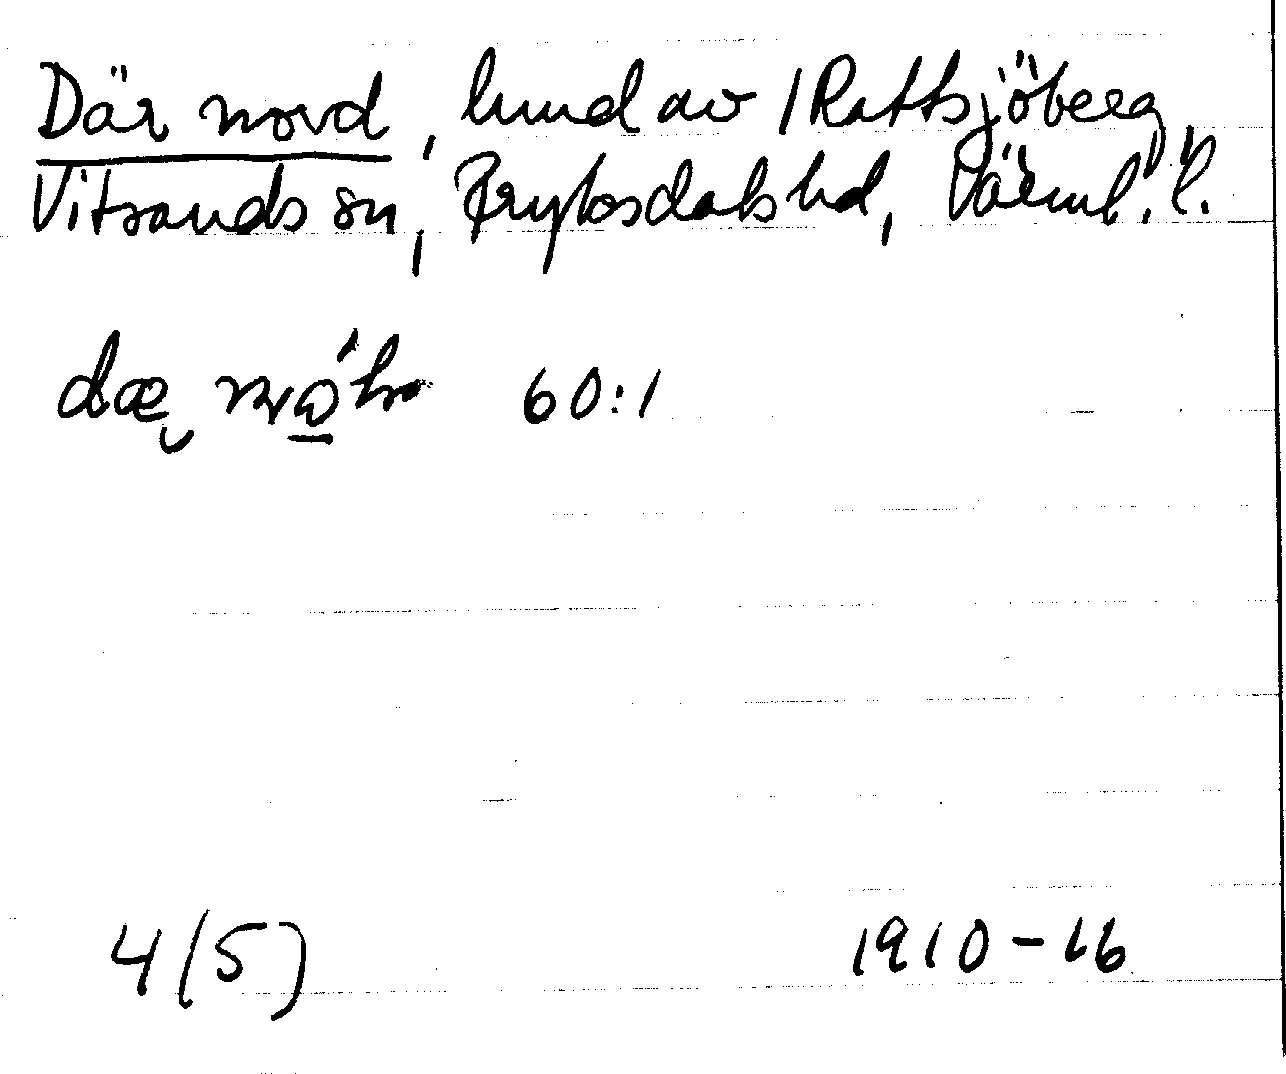 Där nord, lund av /Rattsjöberg,
Vitsands sn, Fryksdals hd, Värml. l.
60:1
4(5)
1910-16